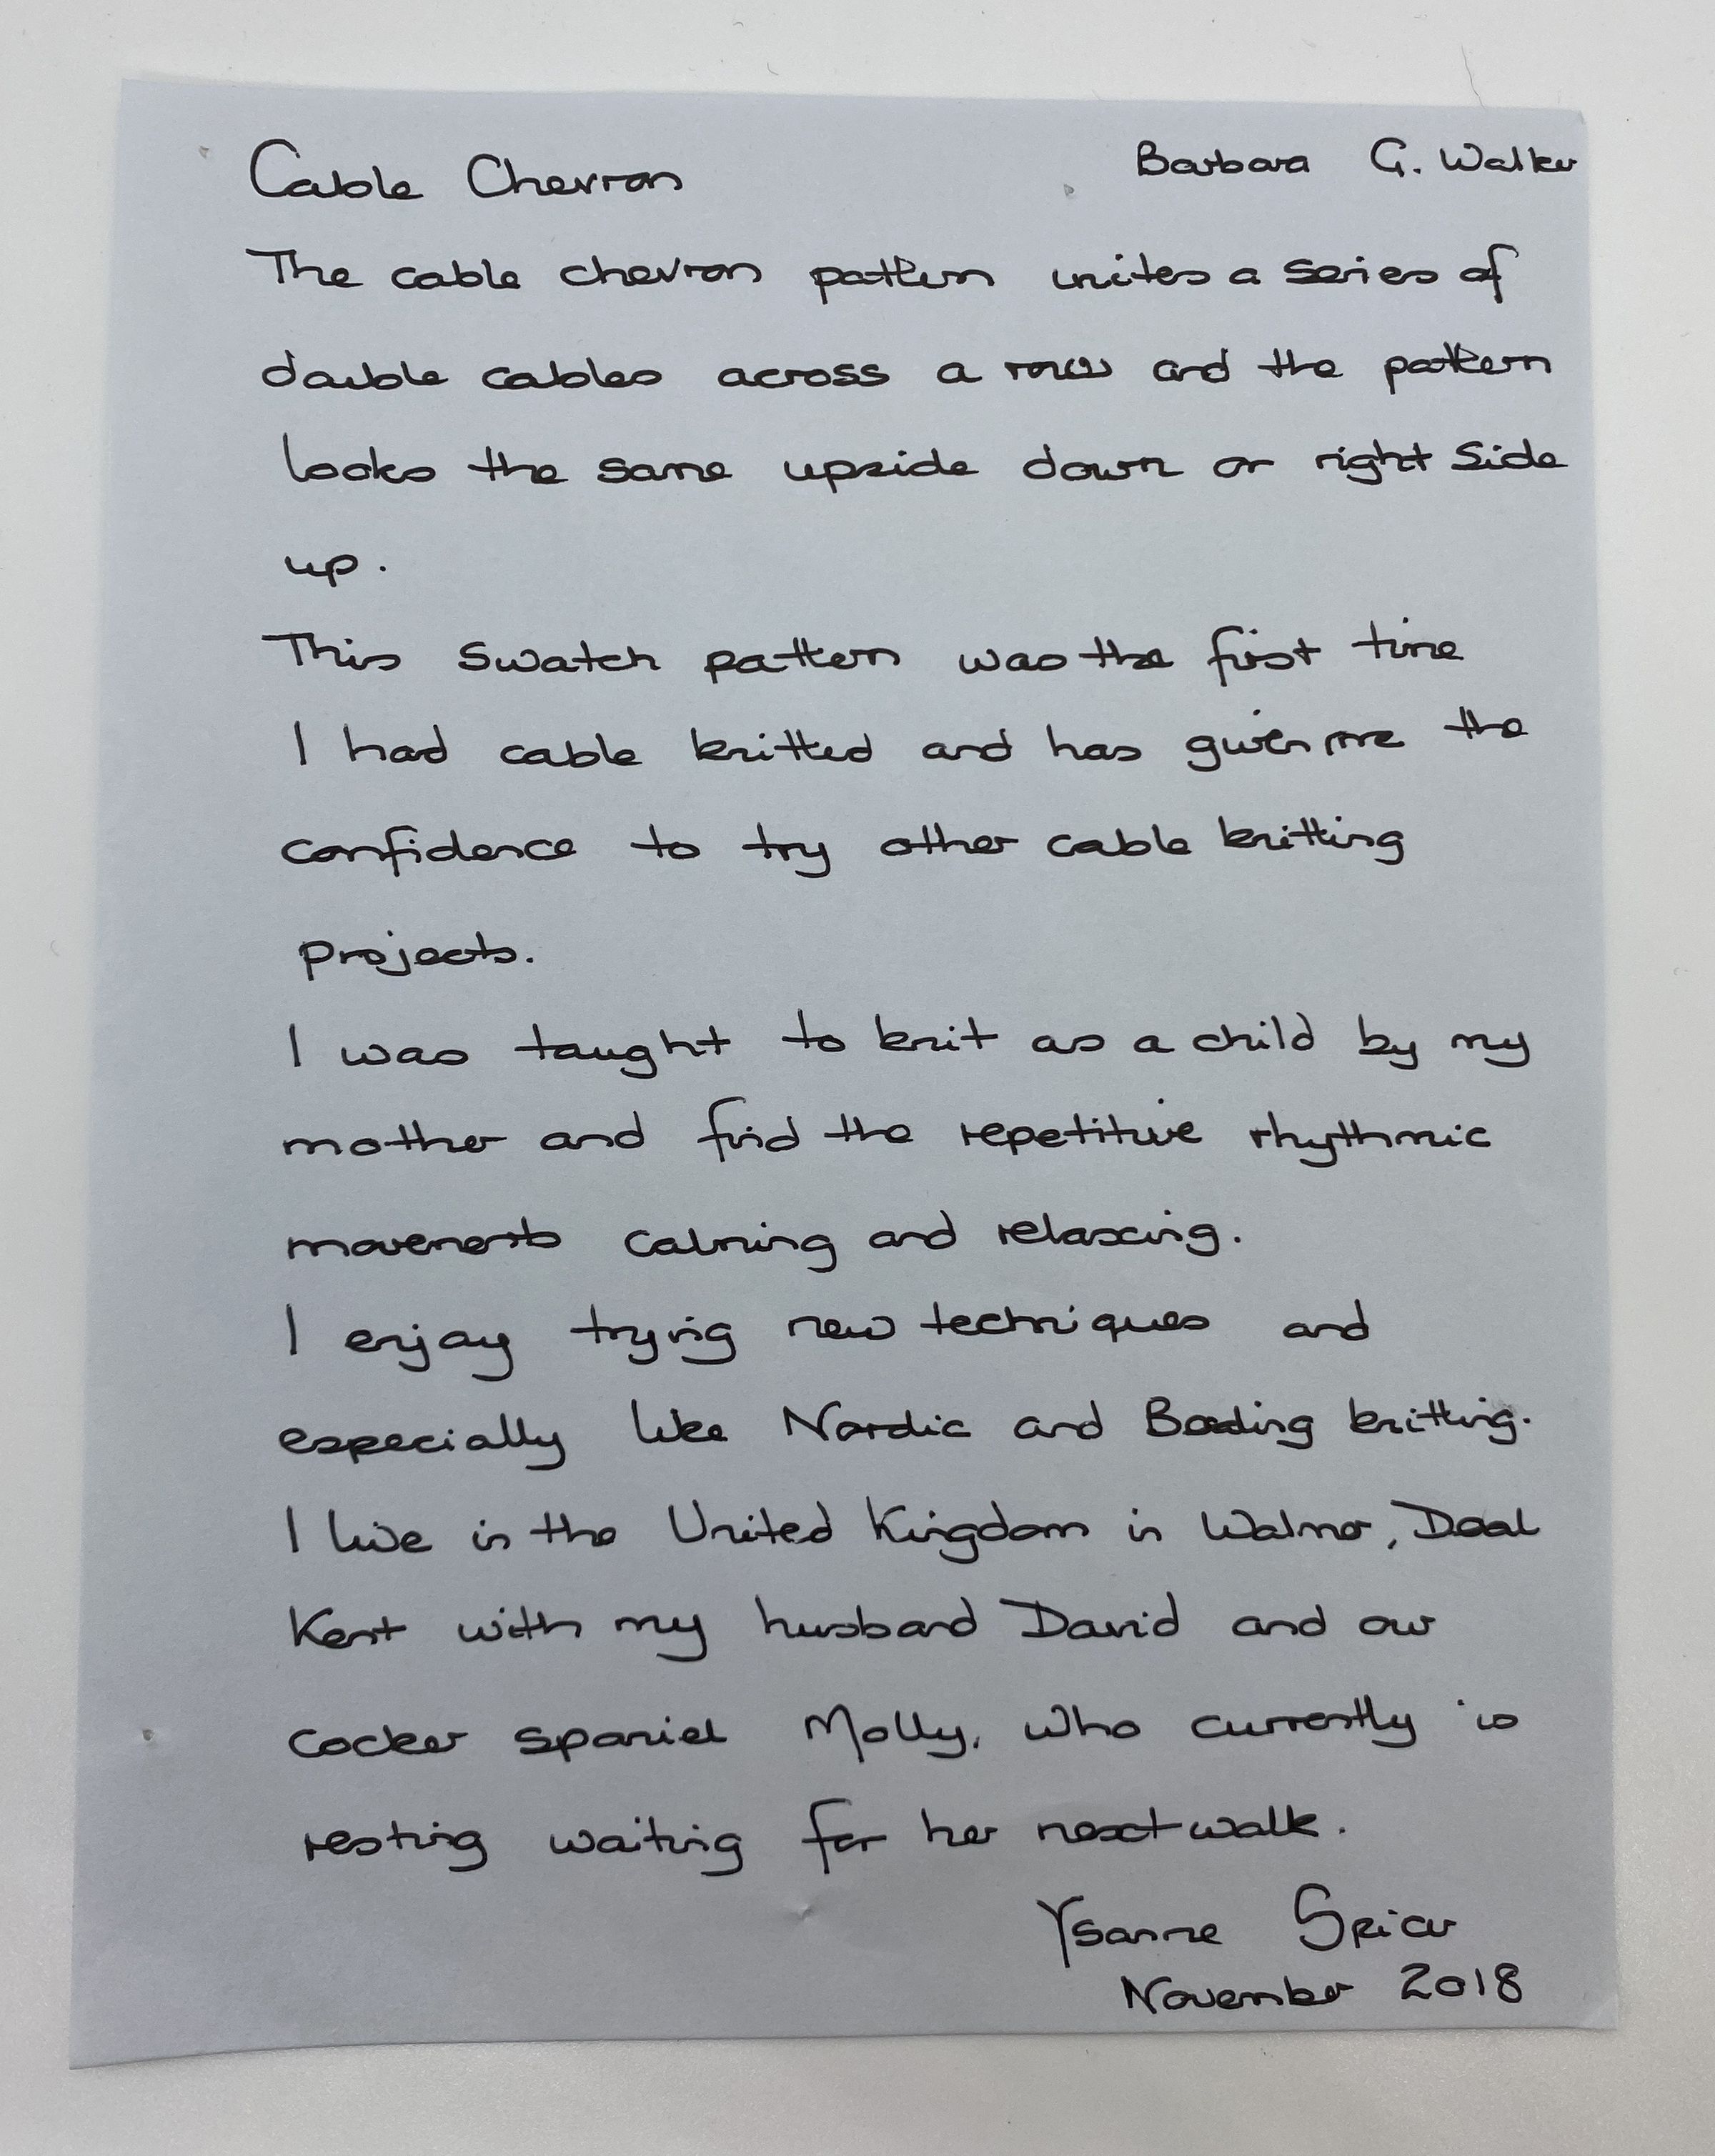 Cable Chevron Barbara G. Walker
The cable chevron pattern unites a series of
double cables across a row and the pattern
looks the same upside down or right side
up.
This swatch pattern was the first time
I had cable knitted and has given me the
confidence to try other cable knitting
projects.
I was taught to knit as a child by my
mother and find the repetitive rhythmic
movements calming and relaxing.
I enjoy trying new techniques and
especially like Nordic and Beading knitting.
I live in the United Kingdom in Walmer, Deal
Kent with my husband David and our
cocker spaniel Molly, who currently is
resting waiting for her next walk.
Ysanne Spicer
November 2018